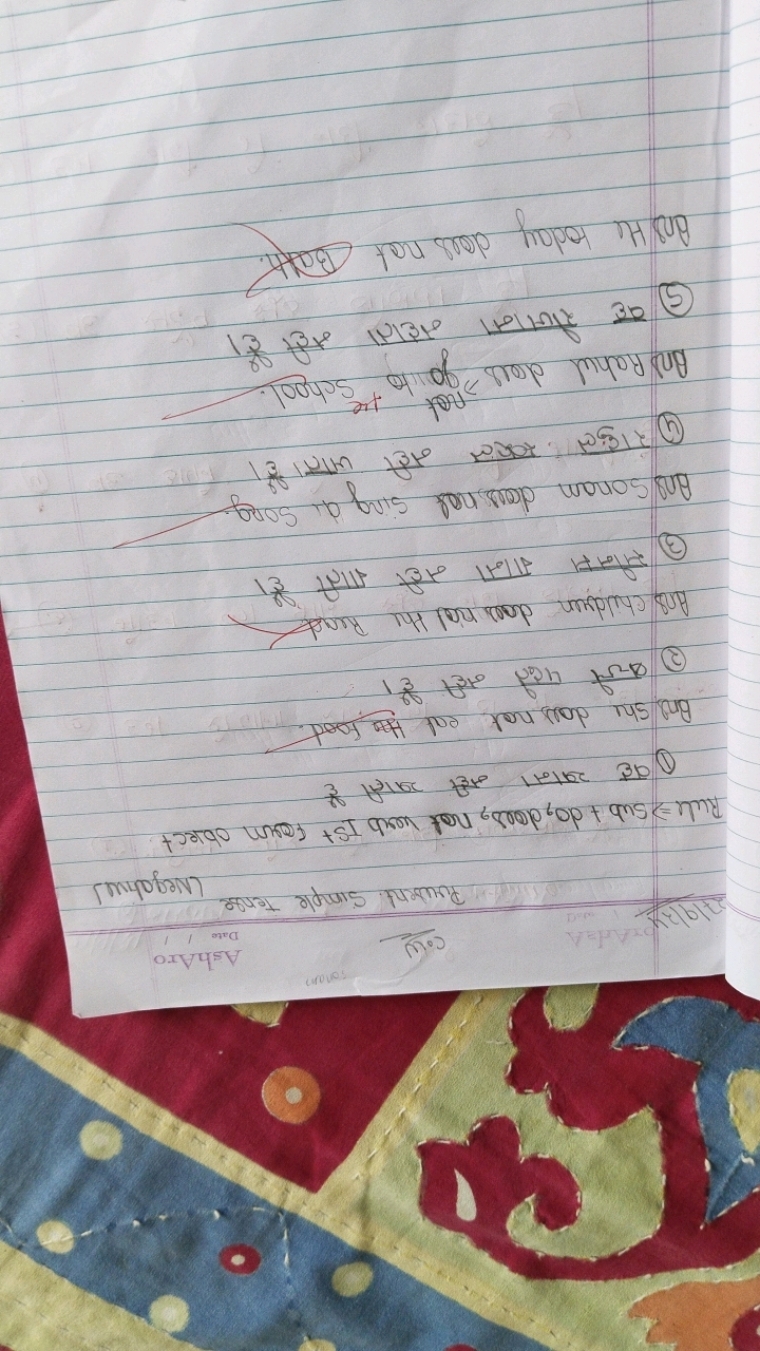 AshAro
Date / /
C.W
27/9/24
Present Simple Tense (Negative)
Rule => Sub + do, does, not verb Ist form object
① वह खाना नहीं खाती है
Ans She does not eat food.
② बच्चे पढ़ते नहीं है।
Ans Children does not the Read
③ सोनम गाना नहीं गाती है।
Ans Sonam does not sing a song.
④ राहुल स्कूल नहीं जाता है।
not the
Ans Rahul does => go to School.
⑤ वह रोजाना नहाता नहीं है।
Ans He today does not Bath.